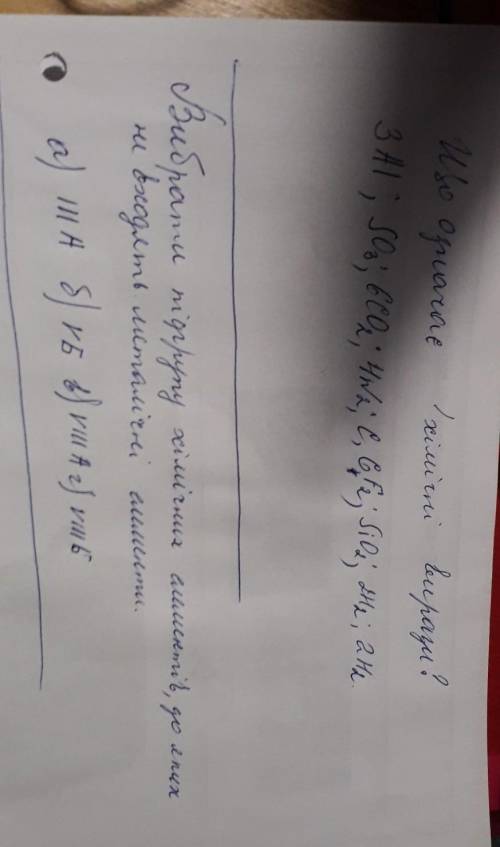 Що означає хімічні вирази?
3Al; SO₃; 6CO₂; 4N₂; C, F₂; SiO₂; 2H₂.
Вибрати підгрупу хімічних елементів, до яких
не входять металічні елементи.
а) III А б) V Б в) VIII А г) VIII Б